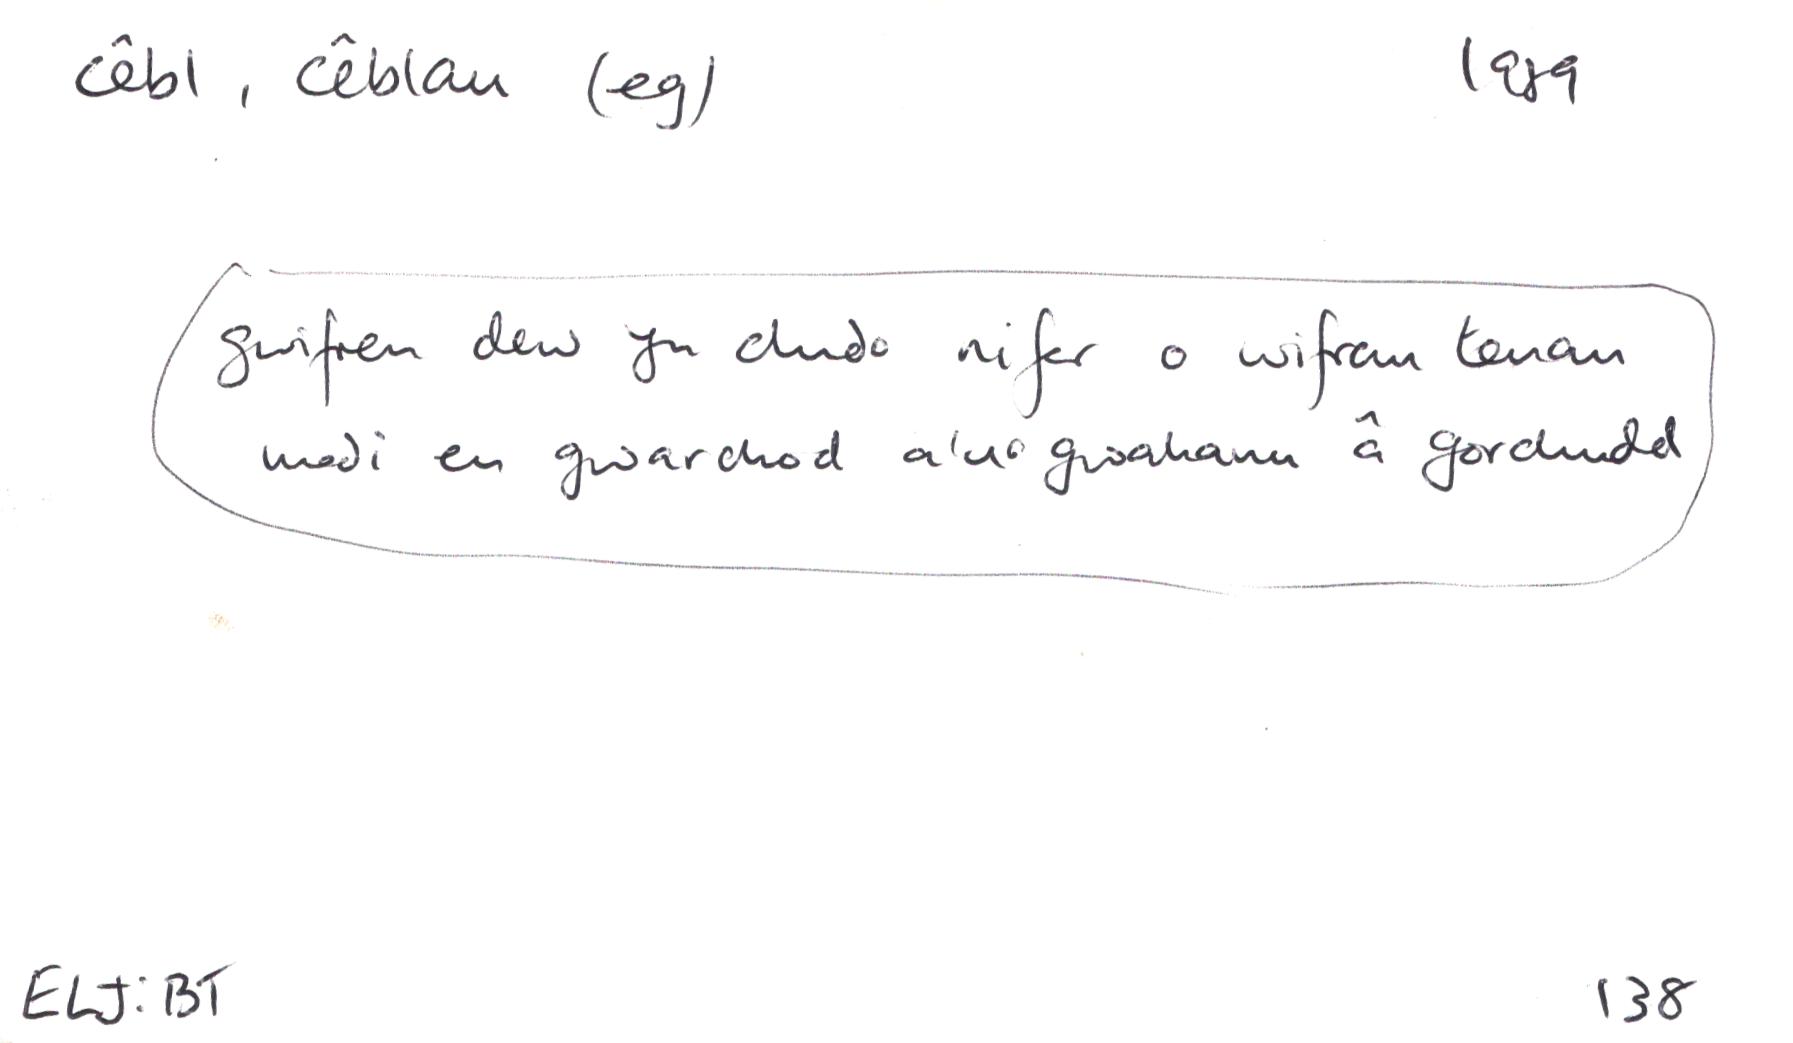 cêbl, cêblau (eg) 1989
gwifren dew yn cludo nifer o wifrau tenau
wedi eu gwarchod a'u gwahanu â gorchudd
ELJ: BT 138